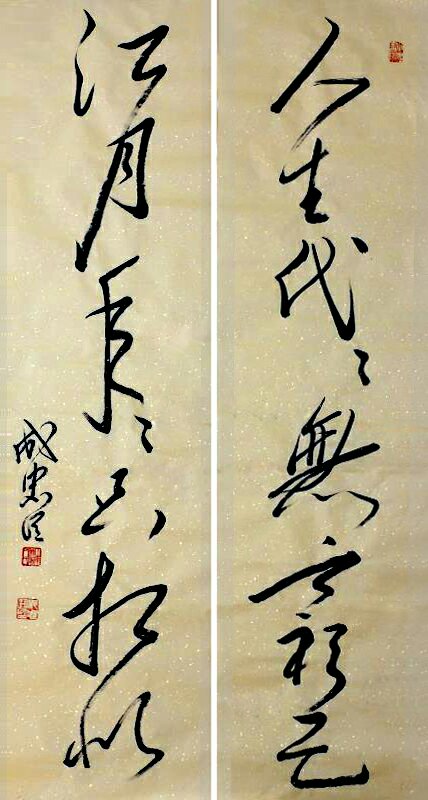 人生代々無窮已
江月年々只相似
成忠